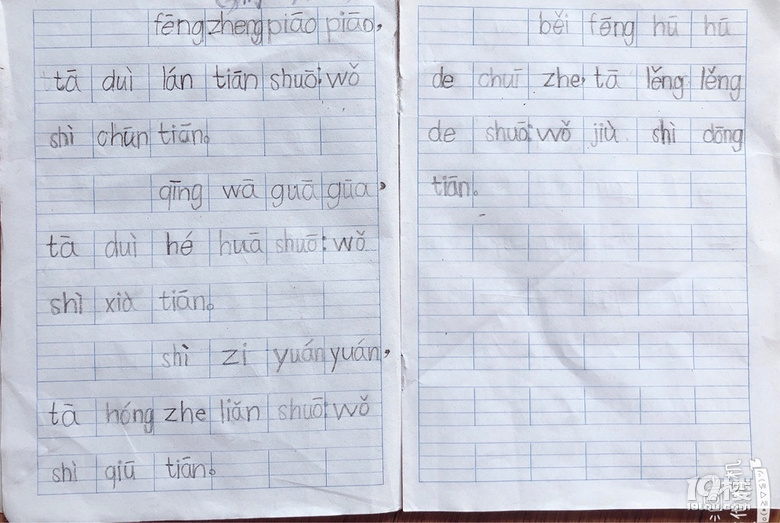 fēng zheng piāo piāo,
tā duì lán tiān shuō: wǒ
shì chūn tiān。
qīng wā guā gūa,
tā duì hé huā shuō: wǒ
shì xià tiān。
shì zi yuán yuán,
tā hóng zhe liǎn shuō: wǒ
shì qiū tiān。
běi fēng hū hū
de chuī zhe, tā lěng lěng
de shuō: wǒ jiù shì dōng
tiān。
19楼